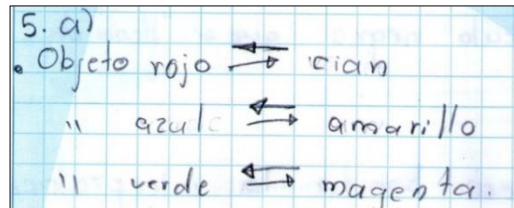 5. a)
• Objeto rojo ⇄ cian
" azul ⇄ amarillo
" verde ⇄ magenta.